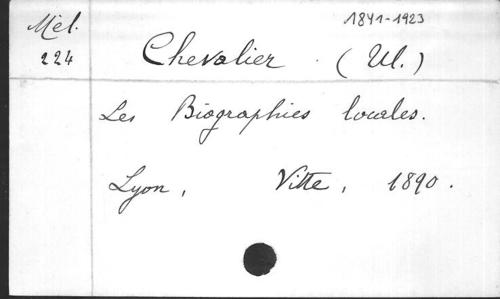 Mél.
224
1841-1923
Chevalier (Ul.)
Les Biographies locales.
Lyon, Vitte, 1890.